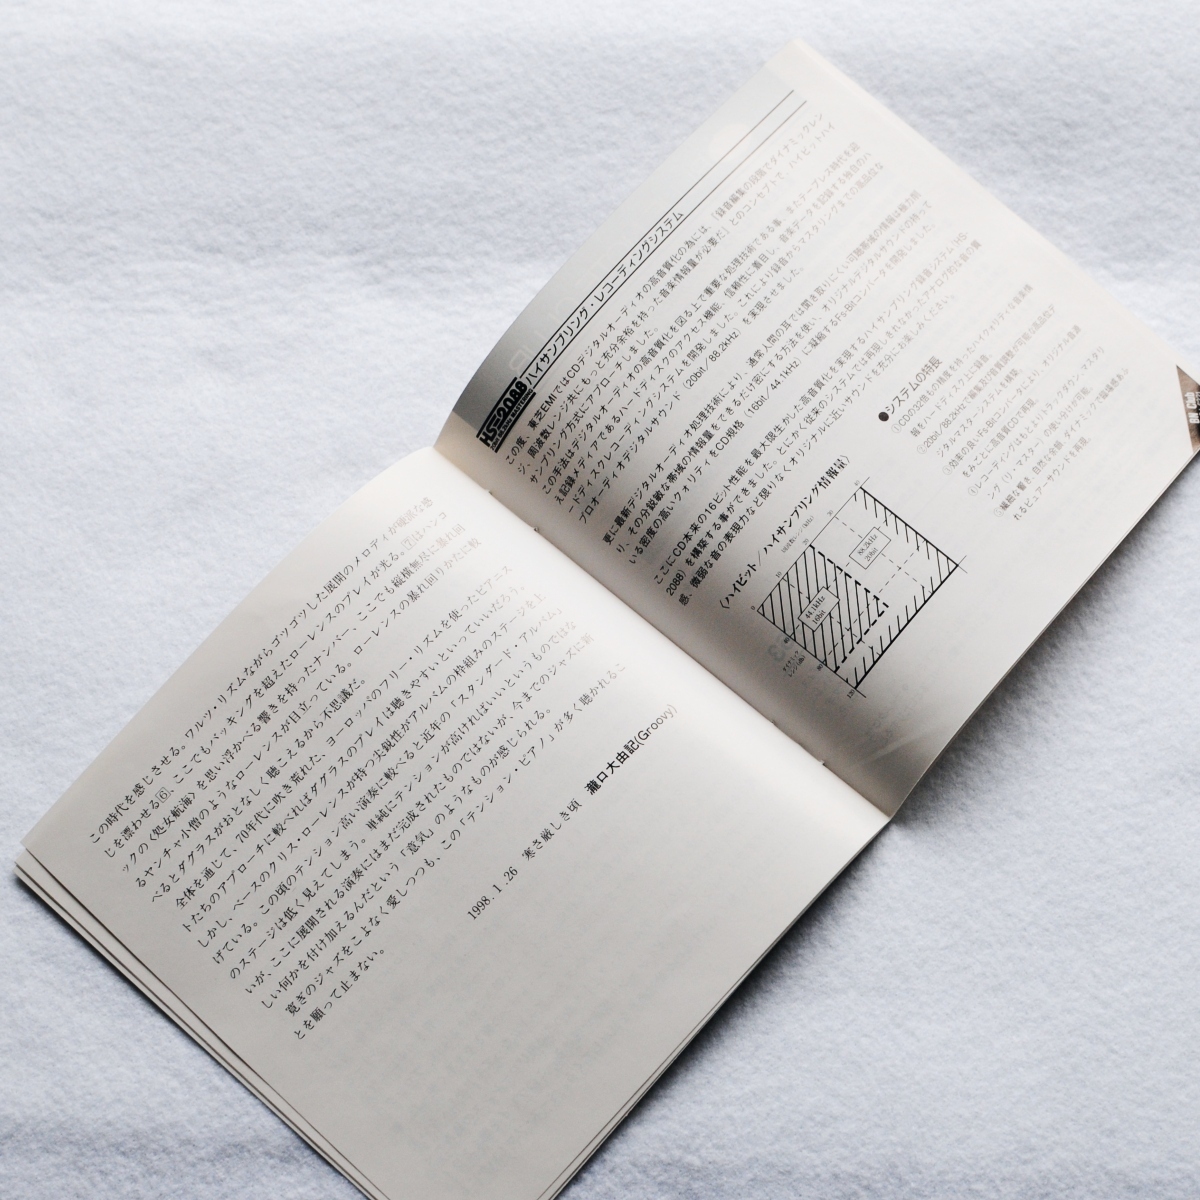 この時代を感じさせる。ワルツ・リズムながらゴツゴツした展開のメロディが幽寂な感
じを漂わせる⑥、ここでもバッキングを超えたローレンスのプレイが光る。⑦はハンコ
ックの〈処女航海〉を思い浮かべる響きを持ったナンバー、ここでも縦横無尽に暴れ回
るヤンチャ小僧のようなローレンスが目立っている。ローレンスの暴れ回りかたに較
べるとダグラスがおとなしく聴こえるから不思議だ。
全体を通じて、70年代に吹き荒れた、ヨーロッパのフリー・リズムを使ったピアニス
トたちのアプローチに較べればダグラスのプレイは聴きやすいといっていいだろう。
しかし、ベースのクリス・ローレンスが持つ尖鋭性がアルバムの枠組みのステージを上
げている。この頃のテンション高い演奏に較べると近年の「スタンダード・アルバム」
のステージは低く見えてしまう。単純にテンションが高ければいいというものではな
いが、ここに展開される演奏にはまだ完成されたものではないが、今までのジャズに新
しい何かを付け加えるんだという「意気」のようなものが感じられる。
寛ぎのジャズをこよなく愛しつつも、この「テンション・ピアノ」が多く聴かれるこ
とを願って止まない。
1998.1.26 寒さ厳しき頃 瀧口大由記(Groovy)
HS-2088
ハイサンプリング・レコーディングシステム
この度、東芝EMIではCDデジタルオーディオの高音質化の為には、「録音編集の段階でダイナミックレン
ジ、周波数レンジ共にもっと充分余裕を持った音楽情報量が必要だ」とのコンセプトで、ハイビットハイ
サンプリング方式にアプローチしました。
この手法はデジタルオーディオの高音質化を図る上で重要な処理技術である事、またテープレス時代を迎
え記録メディアであるハードディスクのアクセス機能、信頼性に着目し、音楽データを記録する独自のハ
ードディスクレコーディングシステムを開発しました。これにより録音からマスタリングまでの高品位な
プロオーディオデジタルサウンド(20bit/88.2kHz)を実現させました。
更に最新デジタルオーディオ処理技術により、通常人間の耳では聞き取りにくい可聴帯域の情報は極力削
り、その分鋭敏な帯域の情報量をできるだけ密にする方法を使い、オリジナルデジタルサウンドが持って
いる密度の高いクォリティをCD規格(16bit/44.1kHz)に凝縮するFs・Bitコンバータを開発しました。
ここにCD本来の16ビット性能を最大限生かした高音質化を実現するハイサンプリング録音システム(HS-
2088)を構築する事ができました。とにかく従来のシステムでは再現しきれなかったアナログ的な音情
感、微弱な音の表現力など限りなくオリジナルに近いサウンドを充分にお楽しみください。
〈ハイビット/ハイサンプリング情報量〉
44.1kHz
16bit
88.2kHz
20bit
●システムの特長
①CDの32倍もの精度を持ったハイクォリティな音楽情
報をハードディスクに録音。